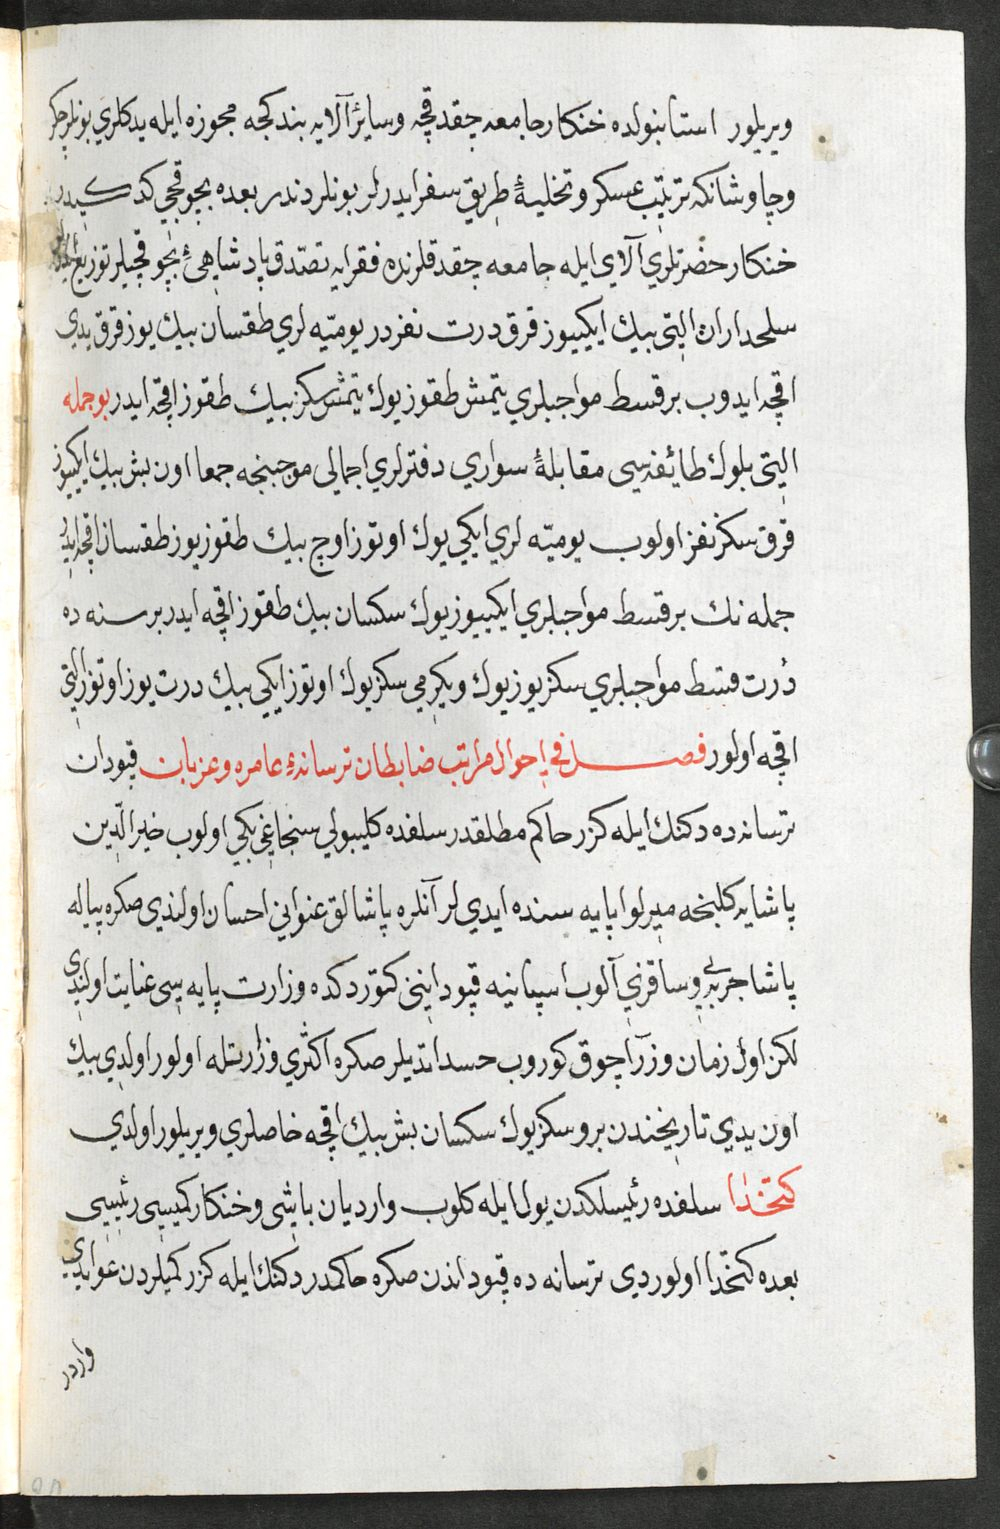 ويريلور استانبولده خنكار جامعه چقدقچه وسائر آلايه بندكجه مجوزه ايله يدكلري بونلر چكر
وچاوشانكه ترتيب عسكر وتخليهٔ طريق سفر ايدرلر بونلردندر بعده بچوقجي كد
خنكار حضرتلري آلاي ايله جامعه چقدقلرنده فقرايه تصدّق پادشاهئ بچوقجيلر توزيع
سلحداران التى بيك ايكييوز قرق درت نفردر يوميّه لري طقسان بيك يوز قرق يدي
اقچه ايدوب بر قسط مواجبلري يتمش طقوز يوك يتمش سكز بيك طقوز اقچه ايدر بو جمله
التى بلوك طائفه سى مقابلهٔ سواري دفترلري اجمالى موجبنجه جمعا اون بش بيك ايكييوز
قرق سكز نفر اولوب يوميّه لري ايكي يوك اوتوز اوچ بيك طقوز يوز طقسان اقچه ايدر
جمله نك بر قسط مواجبلري ايكييوز يوك سكسان بيك طقوز اقچه ايدر بر سنه ده
درت قسط مواجبلري سكز يوز يوك ويكرمي سكز يوك اوتوز ايكي بيك درت يوز اوتوز التى
اقچه اولور فصل في احوال مراتب ضابطان ترسانهٔ عامره وعزبان قپودان
ترسانه ده دكنك ايله كزر حاكم مطلقدر سلفده كليبولي سنجاغي بكي اولوب خيرالدّين
پاشايه كلنجه ميرلوا پايه سنده ايدي لر آنلره پاشالق عنواني احسان اولندي صكره پياله
پاشا جربه يي وساقزي آلوب اسپانيه قپوداننى كتوردكده وزارت پايه سى عنايت اولندي
لكن اول زمان وزرا چوق كوروب حسد اتديلر صكره اكثري وزارتله اولور اولدي بيك
اون يدي تاريخندن برو سكز يوك سكسان بش بيك اقچه خاصلري ويريلور اولدي
كتخدا سلفده رئيسلكدن يولا ايله كلوب وارديان باشى وخنكار كميسى رئيسى
بعده كتخدا اولوردي ترسانه ده قپوداندن صكره حاكمدر دكنك ايله كزر كميلردن عوايدي
واردر